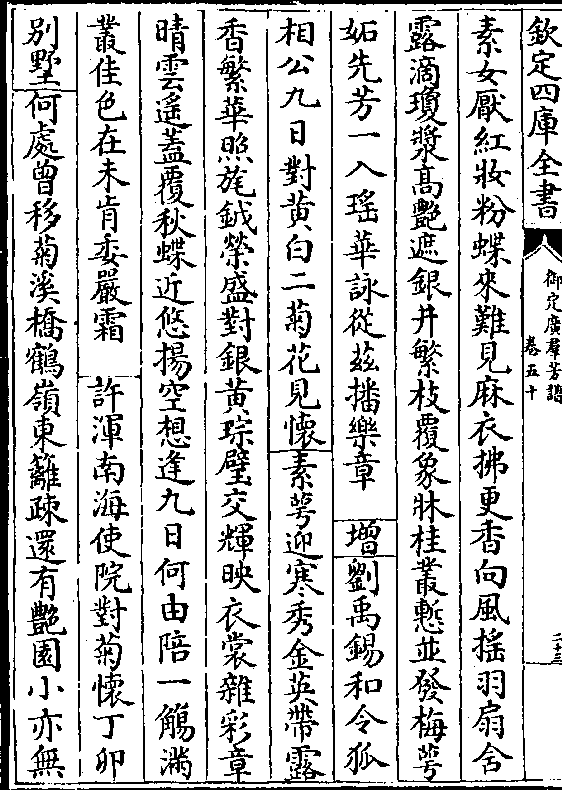 欽定四庫全書
御定廣羣芳譜
卷五十
二十三
素女厭紅妝粉蝶來難見麻衣拂更香向風搖羽扇含
露滴瓊漿髙艷遮銀井繁枝覆象牀桂叢慙並發梅蕚
妬先芳一入瑤華詠從兹播樂章 增劉禹錫和令狐
相公九日對黄白二菊花見懷素蕚迎寒秀金英帶露
香繁華照旄鉞榮盛對銀黄琮璧交輝映衣裳雜彩章
晴雲遙蓋覆秋蝶近悠揚空想逢九日何由陪一觴滿
叢佳色在未肯委嚴霜 許渾南海使院對菊懷丁卯
别墅何處曾移菊溪橋鶴嶺東籬疎還有艷園小亦無